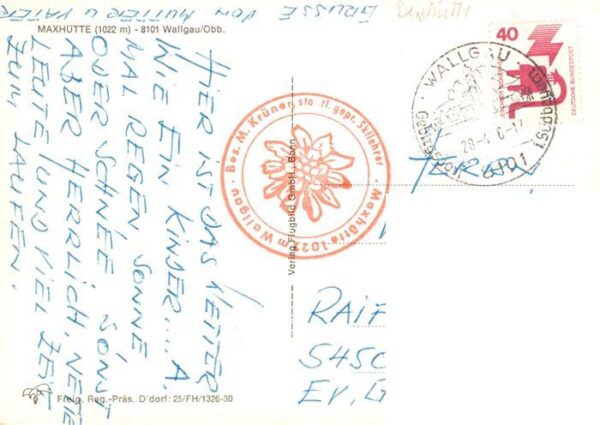 MAXHÜTTE (1022 m) - 8101 Wallgau/Obb.
HIER IST DAS WETTER
WIE EIN KINDER....A.
MAL REGEN SONNE
ODER SCHNEE. SONST
ABER HERRLICH, NETTE
LEUTE UND VIEL ZEIT
ZUM LAUFEN.
GRÜSSE VON MUTTER U VATER
Freig. Reg.-Präs. D'dorf: 25/FH/1326-30
Verlag Flugbild GmbH., Bonn
Maxhütte 1022 m Wallgau. Bes. M. Krüner, sta tl. gepr. Skilehrer
40
DEUTSCHE BUNDESPOST
WALLGAU
8101
HERRN
RAIF
545
EV. G